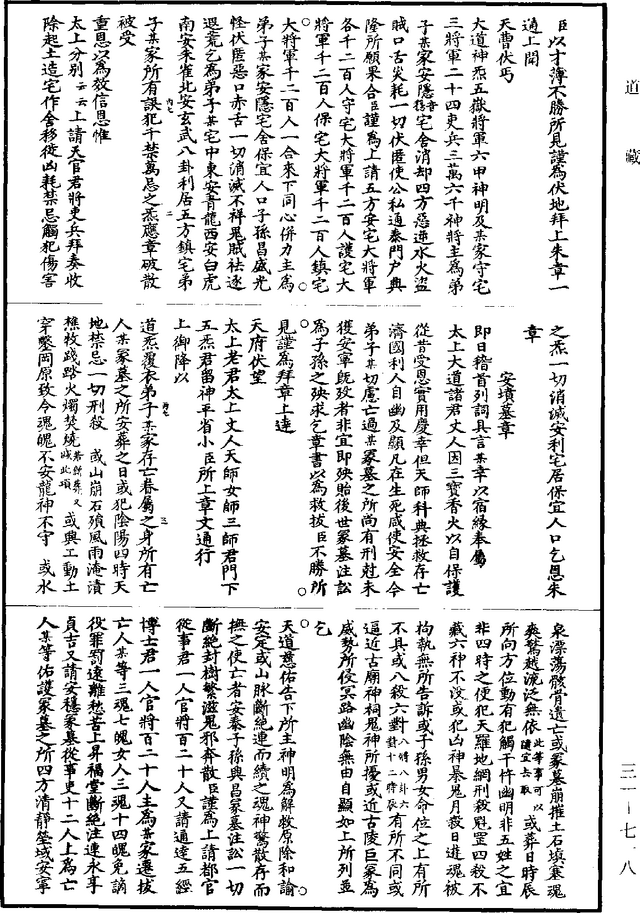 道藏
臣以才薄不勝所見謹為伏地拜上朱章一
通上聞
天曹伏丐
大道神炁五嶽將軍六甲神明及某家守宅
三將軍二十四吏兵三萬六千神將主為弟
子某家安隱宅舍消却四方惡逆水火盜
賊口舌災耗一切伏匿使公私通泰門户興
隆所願果合臣謹為上請五方安宅大將軍
各千二百人守宅大將軍千二百人護宅大
將軍千二百人保宅大將軍千二百人鎮宅
大將軍千二百人一合來下同心併力主為
弟子某家安隱宅舍保宜人口子孫昌盛光
怪伏匿惡口赤舌一切消滅不祥鬼賊祛逐
遐荒乞為弟子某宅中東安青龍西安白虎
南安朱雀北安玄武八卦利居五方鎮宅弟
子某家所有誤犯千禁萬忌之炁應章破散
被受
重恩以為效信恩惟
太上分別云云上請天官君將吏兵拜奏收
除起土造宅作舍移徙凶耗禁忌觸犯傷害
之炁一切消滅安利宅居保宜人口乞恩朱
章
安墳墓章
即日稽首列詞具言某幸以宿緣奉屬
太上大道諸君丈人因三寶香火以自保護
從昔受恩實用慶幸但天師科典拯救存亡
濟國利人自幽及顯凡在生死咸使安全今
弟子某切慮亡過某冢墓之所尚有刑尅未
獲安寧既歿者非宜即殃貽後世冢墓注訟
為子孫之殃求乞章書以為救拔臣不勝所
見謹為拜章上達
天府伏望
太上老君太上丈人天師女師三師君門下
五炁君留神平省小臣所上章文通行
上御降以
道炁覆衣弟子某家存亡眷屬之身所有亡
人某冢墓之所安葬之日或犯陰陽四時天
地禁忌一切刑殺或山崩石殞風雨淹漬
樵牧踐踏火燭焚燒或興工動土
穿鑿岡原致令魂魄不安龍神不守或水
泉漂蕩骸骨遺亡或冢墓崩摧土石填塞魂
爽驚越流泛無依此等事可以隨宜去取或葬日時辰
所向方位動有犯觸干忤幽明非五姓之宜
非四時之便犯天羅地網刑殺魁罡四殺不
藏六神不沒或犯凶神暴鬼月殺日遊魂被
拘執無所告訴或子孫男女命位之上有所
不具或八殺六對有所不同或
逼近古廟神祠鬼神所擾或近古陵巨冢為
威勢所侵冥路幽陰無由自顯如上所列並
乞
天道慈佑告下所主神明為解救原除和諭
安定或山脉斷絶連而續之魂神驚散存而
撫之使亡者安泰子孫興昌冢墓注訟一切
斷絶封樹繁滋鬼邪奔散臣謹為上請都官
從事君一人官將百二十人又請通達五經
博士君一人官將百二十人主為某家遷拔
亡人某等三魂七魄女人三魂十四魄免謫
役罪罰遠離愁苦上昇福堂斷絶注連永享
貞吉又請安穩冢墓從事吏十二人上為亡
人某等佑護冢墓之所四方清靜塋域安寧
三一—七一八